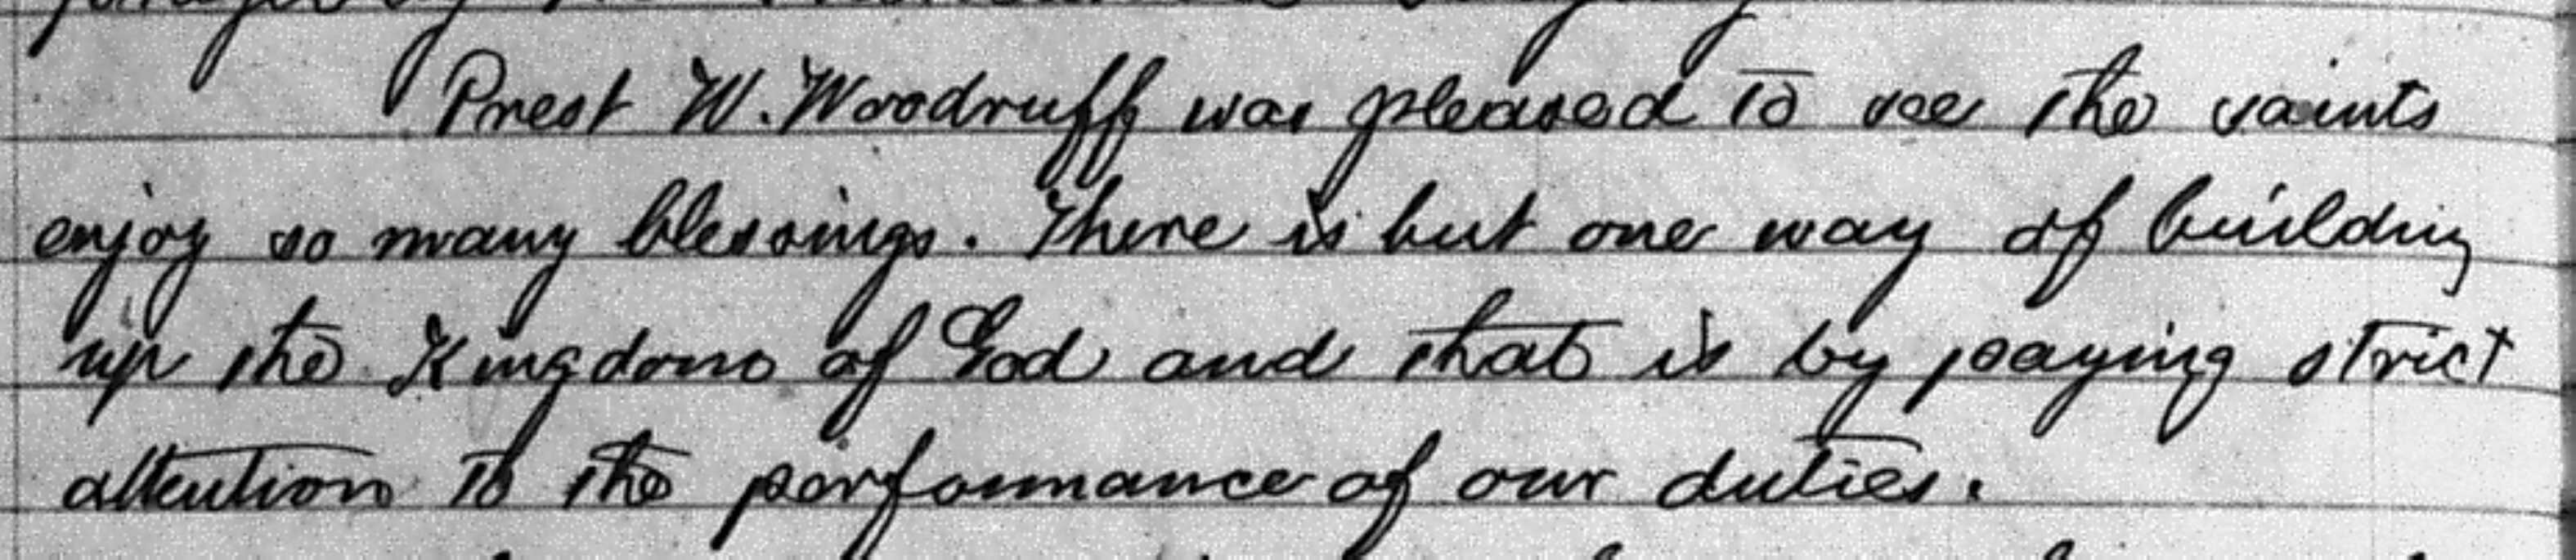 Prest W. Woodruff was pleased to see the saints
enjoy so many blessings. There is but one way of building
up the Kingdom of God and that is by paying strict
attention to the performance of our duties.